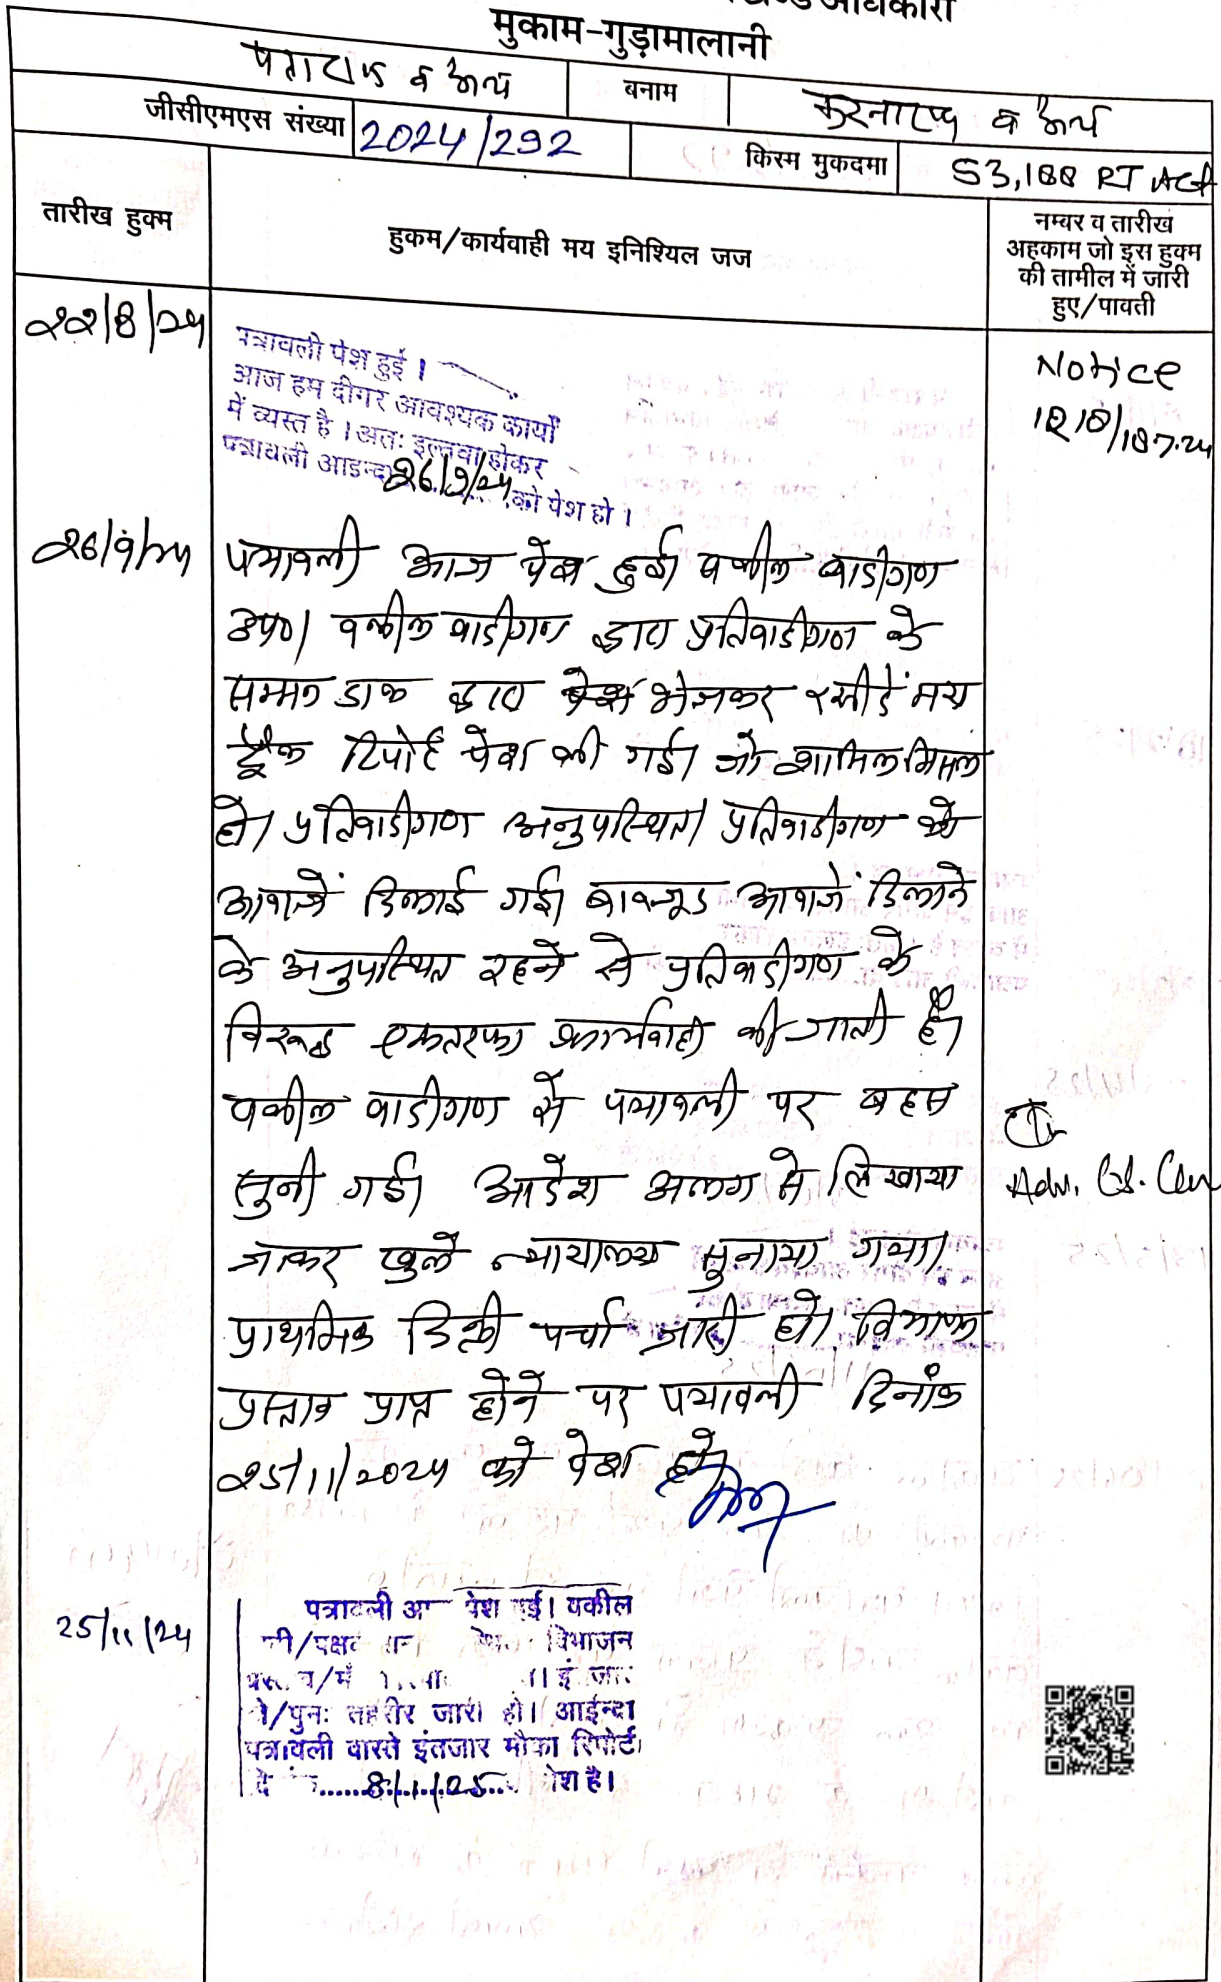 मुकाम-गुड़ामालानी
व अन्य
बनाम
व अन्य
जीसीएमएस संख्या
2024/292
किस्म मुकदमा
53,188 RT Act
तारीख हुक्म
हुकम/कार्यवाही मय इनिश्यिल जज
नम्बर व तारीख
अहकाम जो इस हुक्म
की तामील में जारी
हुए/पावती
22/8/24
पत्रावली पेश हुई ।
आज हम दीगर आवश्यक कार्यों
में व्यस्त है । अतः इल्तवा होकर
पत्रावली आइन्दा 26/9/24 को पेश हो ।
Notice
18.7.24
26/9/24
पत्रावली आज पेश हुई। वकील वादीगण
उप0। वकील वादीगण द्वारा प्रतिवादीगण के
सम्मन डाक द्वारा भेजकर रसीदें मय
ट्रैक रिपोर्ट पेश की गई। जो शामिल मिसल
हो। प्रतिवादीगण अनुपस्थित। प्रतिवादीगण को
आवाजें दिलाई गई। बावजूद आवाजें दिलाने
के अनुपस्थित रहने से प्रतिवादीगण के
विरूद्ध एकतरफा कार्यवाही की जाती है।
वकील वादीगण से पत्रावली पर बहस
सुनी गई। आदेश अलग से लिखाया
जाकर खुले न्यायालय सुनाया गया।
प्राथमिक डिक्री पर्चा जारी हो। विभाजन
प्रस्ताव प्राप्त होने पर पत्रावली दिनांक
25/11/2024 को पेश हो।
Adv.
25/11/24
पत्रावली पेश हुई। वकील
विभाजन
/पुनः तहरीर जारी हो। आईन्दा
पत्रावली वास्ते इंतजार मौका रिपोर्ट
8/1/25 पेश है।